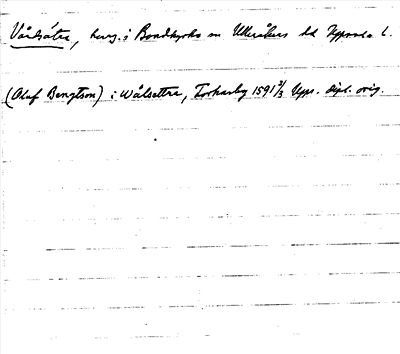 Vårdsätra, herrg. i Bondkyrko sn Ulleråkers hd Uppsala l.
(Oluf Bengtson) i Wålsettre, Torkarby 1591 7/3 Upps. dipl. orig.